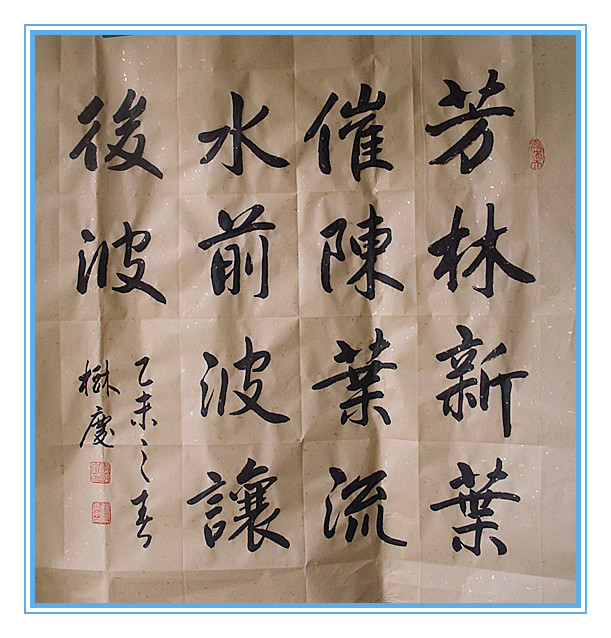 芳林新葉
催陳葉流
水前波讓
後波
乙未之春
楙慶